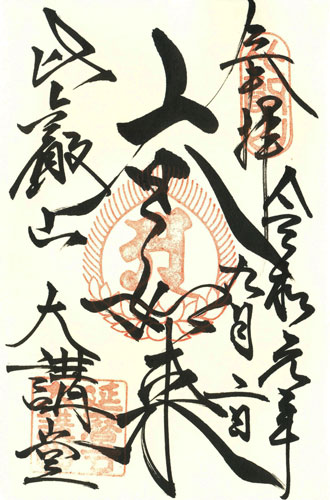 奉拝
令和元年
九月二日
大日如来
比叡山
大講堂
延暦寺